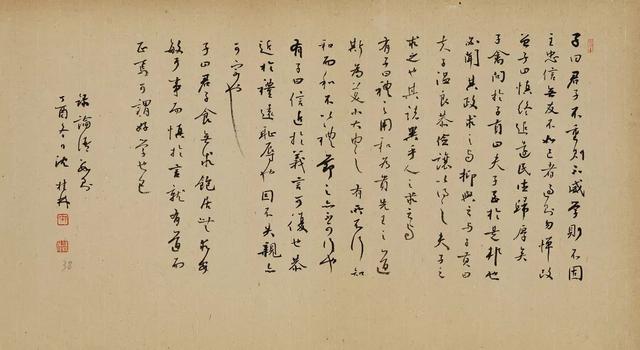 子曰君子不重則不威學則不固
主忠信無友不如己者過則勿憚改
曾子曰慎終追遠民德歸厚矣
子禽問於子貢曰夫子至於是邦也
必聞其政求之與抑與之與子貢曰
夫子溫良恭儉讓以得之夫子之
求之也其諸異乎人之求之與
有子曰禮之用和為貴先王之道
斯為美小大由之有所不行知
和而和不以禮節之亦不可行也
有子曰信近於義言可復也恭
近於禮遠恥辱也因不失親亦
可宗也
子曰君子食無求飽居無求安
敏於事而慎於言就有道而
正焉可謂好學也已
錄論語數則
丁酉冬日沈
38